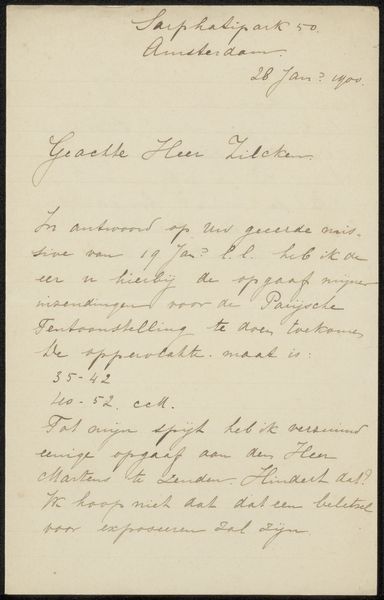 Sarphatipark 50.
Amsterdam.
28 Jan? 1900.
Geachte Heer Zilcken.
In antwoord op Uw geeerde mis-
sive van 19 Jan? l.l. heb ik de
eer u hierbij de opgaaf mijner
inzendingen voor de Parijsche
Tentoonstelling te doen toekomen
De oppervlakte maat is:
35-42
40-52. ccM.
Tot mijn spijt heb ik verzuimd
eenige opgaaf aan den Heer
Martens te zenden. Hindert dat?
Ik hoop niet dat dat een beletsel
voor exposeeren zal zijn.